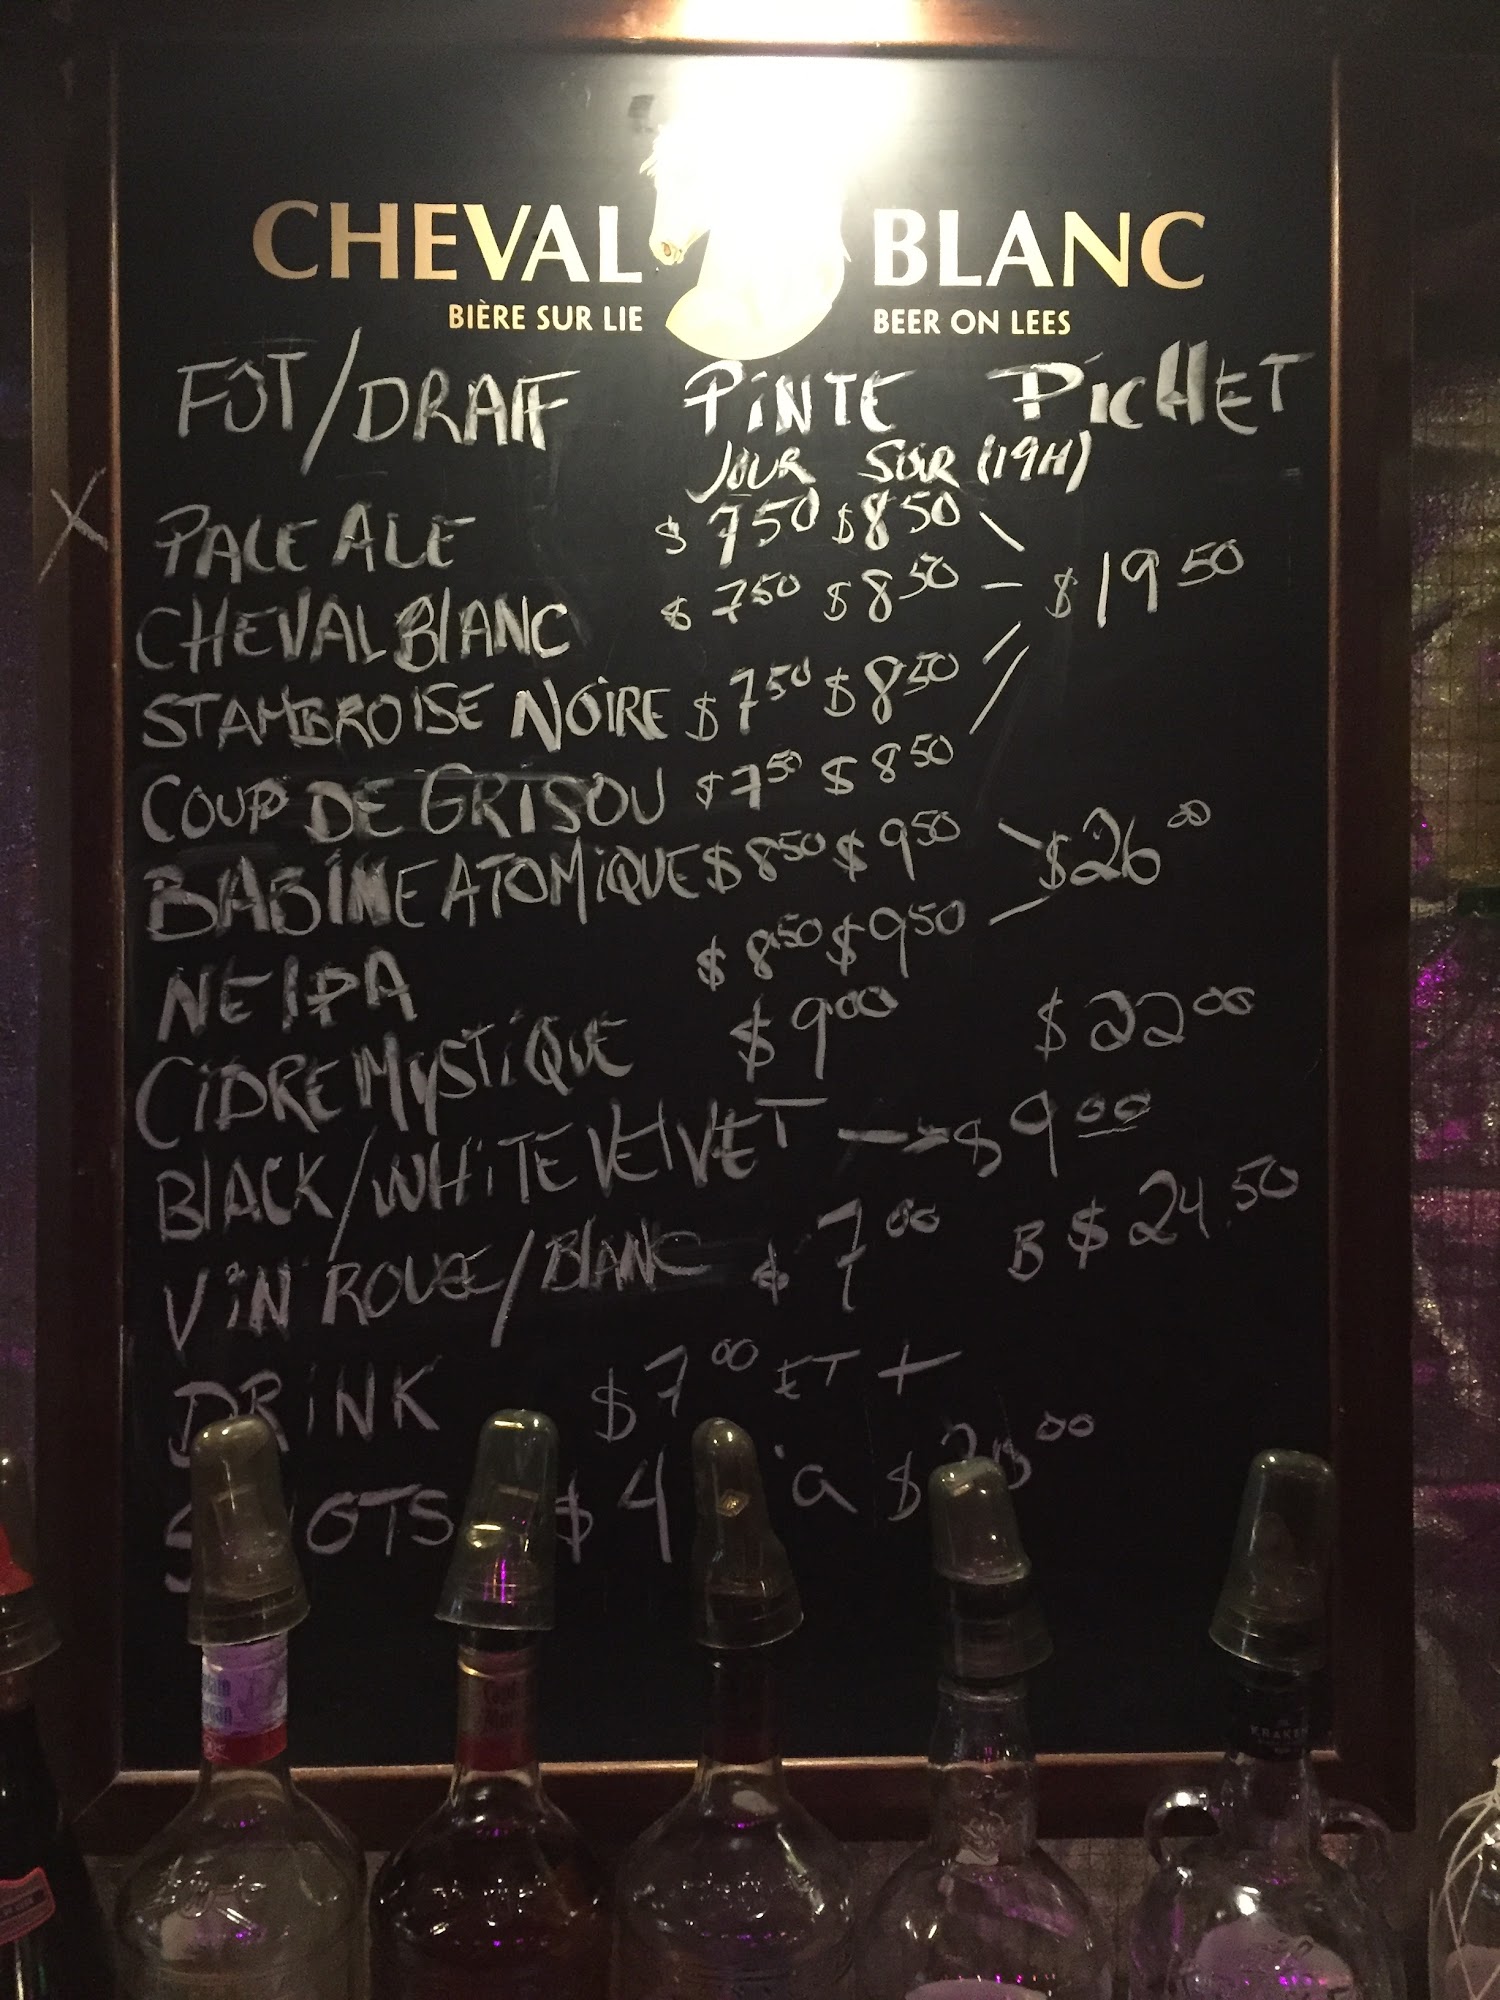 CHEVAL BLANC
BIÈRE SUR LIE BEER ON LEES
FÛT/DRAFT PINTE PICHET
JOUR SOIR (19H)
X
PALE ALE $7.50 $8.50
CHEVAL BLANC $7.50 $8.50 – $19.50
STAMBROISE NOIRE $7.50 $8.50
COUP DE GRISOU $7.50 $8.50
BABINE ATOMIQUE $8.50 $9.50 $26.00
NEIPA $8.50 $9.50
CIDRE MYSTIQUE $9.00 $22.00
BLACK/WHITE VELVET → $9.00
VIN ROUGE/BLANC $7.00 B $24.50
DRINK $7.00 ET +
SHOTS $4 à $
KRAKEN